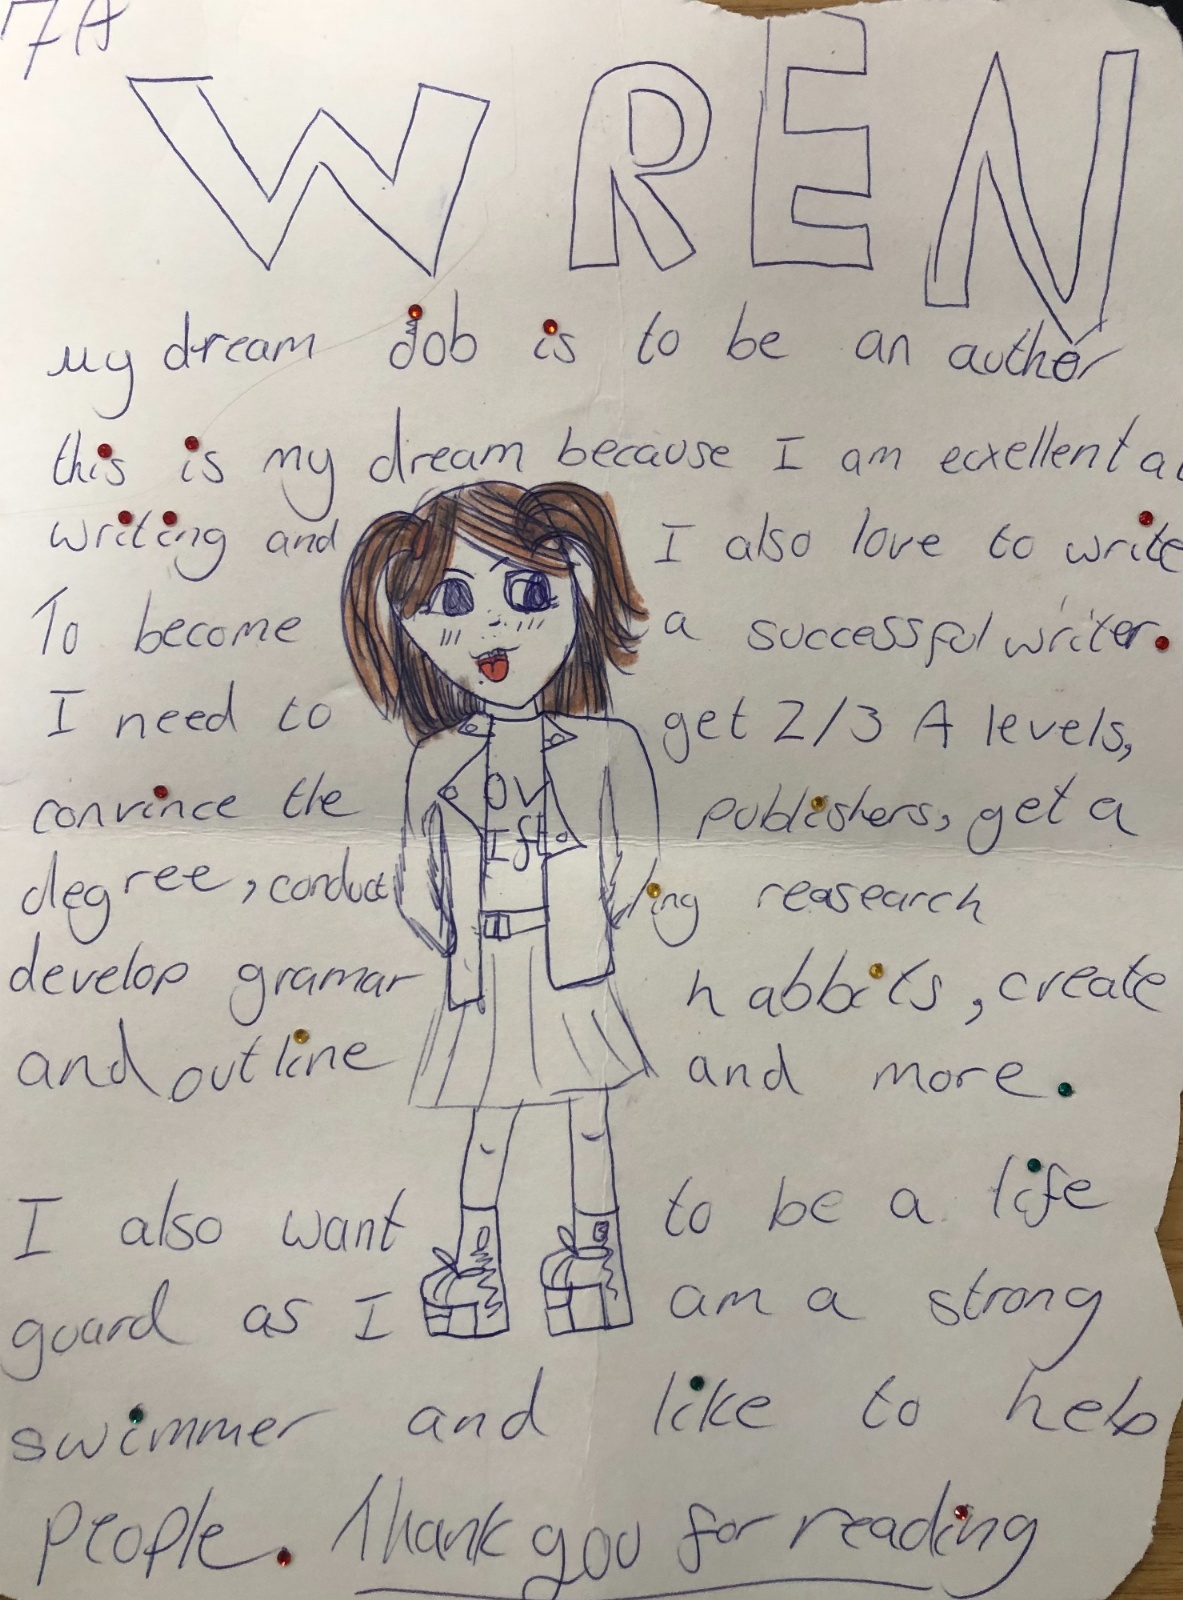 7A
WREN
my dream job is to be an author
this is my dream because I am ecxellent at
writing and I also love to write
To become a successful writer.
I need to get 2/3 A levels,
convince the publishers, get a
degree, conducting reasearch
develop gramar habbits, create
and outline and more.
I also want to be a life
guard as I am a strong
swimmer and like to help
people. Thank you for reading